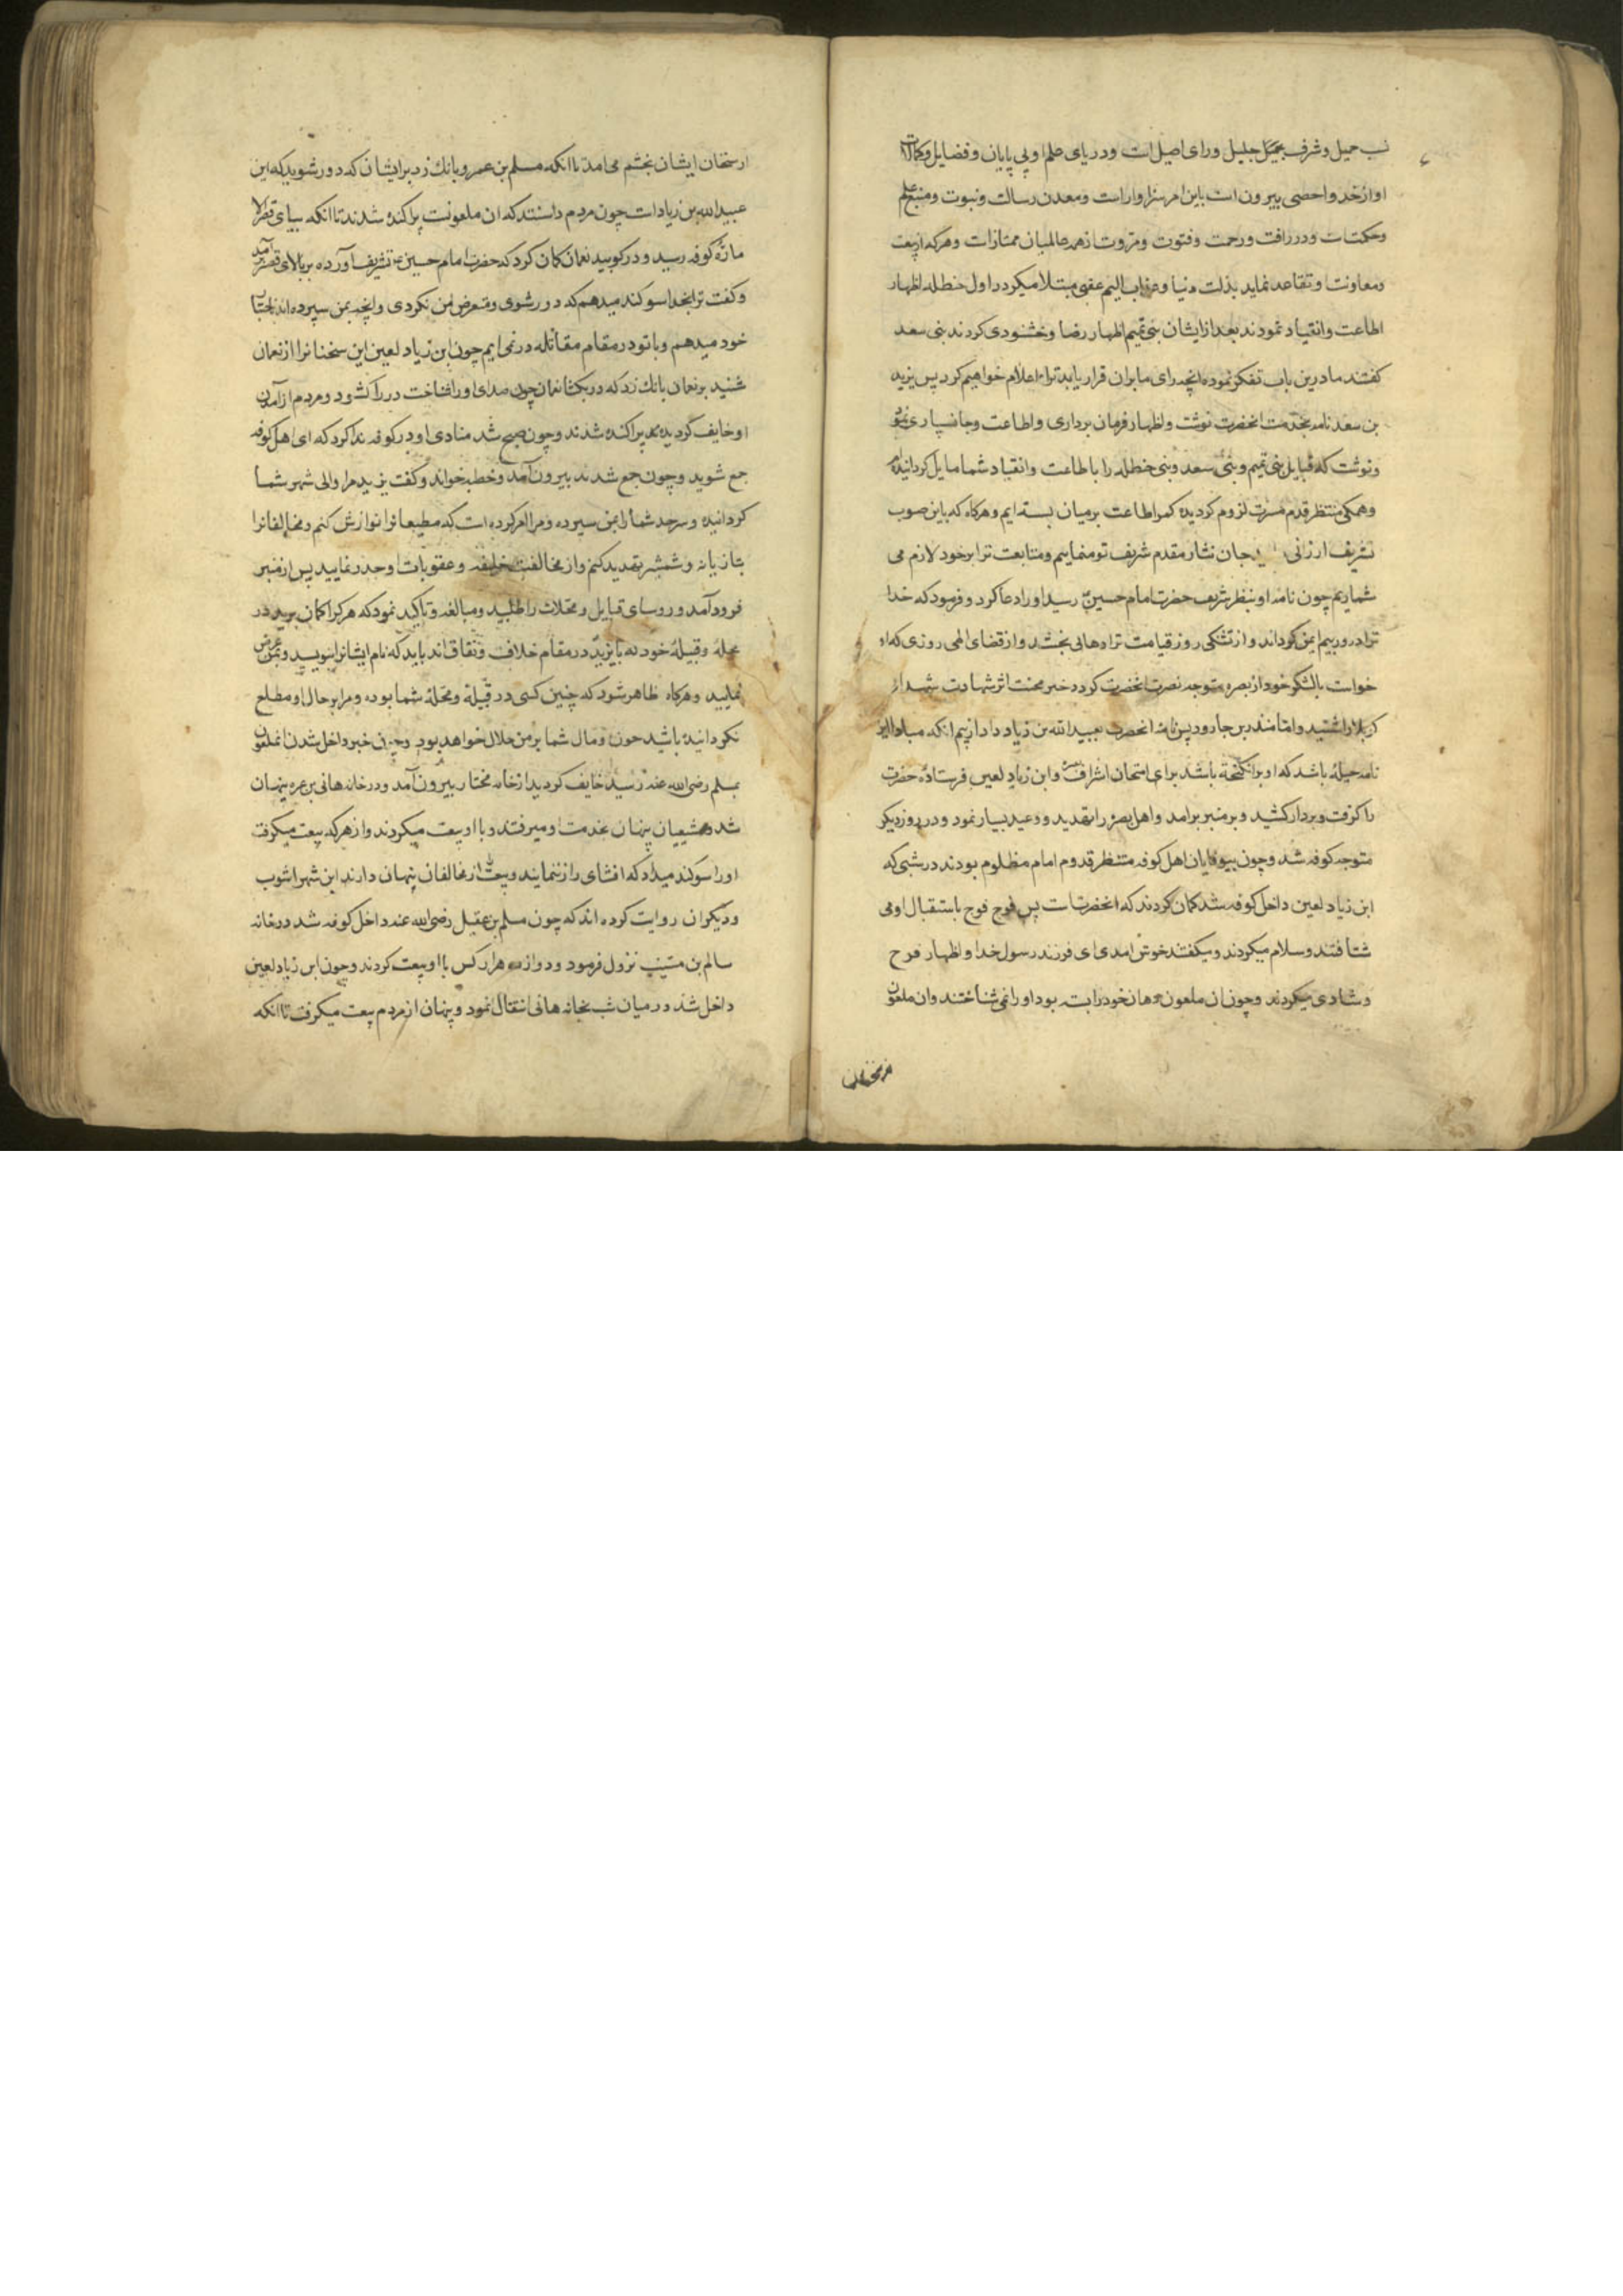 نسب جمیل و شرف بمیکل جلیل و رای اصیل است و دریای علم او بی پایان و فضایل و کمالات
او از حد و احصی بیرون است باین امر سزاوار است و معدن رسالت و نبوت و منبع علم
و حکمتست و در رافت و رحمت و فتوت و مروت از همه عالمیان ممتاز است و هر که از بیعت
و معاونت او تقاعد نماید بذلت دنیا و عذاب الیم عقبی مبتلا میکردد اول حنطله اظهار
اطاعت و انقیاد نمودند بعد از ایشان بنی تمیم اظهار رضا و خشنودی کردند بنی سعد
کفتند ما درین باب تفکر نموده انچه رای ما بران قرار یابد ترا اعلام خواهیم کرد پس یزید
بن سعد نامه بخدمت انحضرت نوشت و اظهار فرمان برداری و اطاعت و جانسپاری نمود
و نوشت که قبایل بنی تمیم و بنی سعد و بنی حنطله را با طاعت و انقیاد شما مایل کردانیده ام
و همکی منتظر قدم مسرت لزوم کردیده کمر اطاعت بر میان بسته ایم و هرکاه که باین صوب
تشریف ارزانی جان نثار مقدم شریف تو مینماییم و متابعت ترا بر خود لازم می
شماریم چون نامه او بنظر شریف حضرت امام حسین رسید او را دعا کرد و فرمود که خدا
ترا در روز بیم ایمن کرداند و از تشنکی روز قیامت ترا رهائی بخشد و از قضای الهی روزی که او
خواست با لشکر خود از بصره متوجه نصرت انحضرت کردد خبر محنت اثر شهادت شهدای
کربلا را شنید و اما منذر بن جارود پس نامه انحضرت بعبیدالله بن زیاد داد از بیم انکه مبادا این
نامه حیله باشد که او برانکیخته باشد برای امتحان اشراف بصره و ابن زیاد لعین فرستاده حضرت
را کرفت و بردار کشید و بر منبر برامد و اهل بصره را تهدید و وعید بسیار نمود و در روز دیکر
متوجه کوفه شد و چون بیوفایان اهل کوفه منتظر قدوم امام مظلوم بودند در شبی که
ابن زیاد لعین داخل کوفه شد کمان کردند که انحضرتست پس فوج فوج باستقبال او می
شتافتند و سلام میکردند و میکفتند خوش امدی ای فرزند رسول خدا و اظهار فرح
و شادی میکردند و چون ان ملعون دهان خود را بسته بود او را نمی شناختند و ان ملعون
از سخنان
از سخنان ایشان بخشم می امد تا انکه مسلم بن عمرو بانک زد بر ایشان که دور شوید که این
عبیدالله بن زیاد است چون مردم دانستند که ان ملعونست پراکنده شدند تا انکه بپای قصر الا
ماره کوفه رسید و در کوبید نعمان کمان کرد که حضرت امام حسین تشریف اورده بر بالای قصر بر آمد
و کفت ترا بخدا سوکند میدهم که دور شوی و متعرض من نکردی و انچه بمن سپرده اند
خود میدهم و با تو در مقام مقاتله در نمی ایم چون ابن زیاد لعین این سخنانرا از نعمان
شنید بر نعمان بانک زد که در بکشا نعمان چون صدای او را شناخت در را کشود و مردم از آمدن
او خایف کردیده پراکنده شدند و چون صبح شد منادی او در کوفه ندا کرد که ای اهل کوفه
جمع شوید و چون جمع شدند بیرون آمد و خطبه خواند و کفت یزید مرا والی شهر شما
کردانیده و سرحد شما را بمن سپرده و مرا امر کرده است که مطیعانرا نوازش کنم و مخالفانرا
بتازیانه و شمشیر تهدید کنم و از مخالفت خلیفه و عقوبات او حذر نمایید پس از منبر
فرود آمد و روسای قبایل و محلات را طلبید و مبالغه و تاکید نمود که هر کرا کمان برید در
محله و قبیله خود که با یزید در مقام خلاف و نفاق اند باید که نام ایشانرا بنویسید و بمن عرض
نمایید و هرکاه ظاهر شود که چنین کسی در قبیله و محله شما بوده و مرا بر حال او مطلع
نکردانیده باشید خون و مال شما بر من حلال خواهد بود و چون خبر داخل شدن انملعون
بمسلم رضی الله عنه رسید خایف کردید از خانه مختار بیرون آمد و در خانه هانی بن عروه پنهان
شد و شیعیان پنهان بخدمت او میرفتند و با او بیعت میکردند و از هر که بیعت میکرفت
او را سوکند میداد که افشای راز ننمایند و بیعت از مخالفان پنهان دارند ابن شهراشوب
و دیکران روایت کرده اند که چون مسلم بن عقیل رضی الله عنه داخل کوفه شد در خانه
سالم بن مسیب نزول فرمود و دوازده هزار کس با او بیعت کردند و چون ابن زیاد لعین
داخل شد در میان شب بخانه هانی انتقال نمود و پنهان از مردم بیعت میکرفت تا انکه